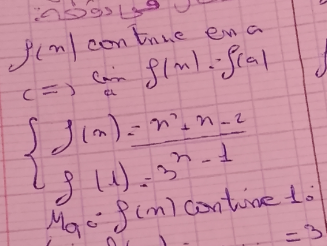 f(x) continue en a
<=> lim f(x) = f(a)
a
{ f(x) = x² + x - 2
x - 1
f(1) = 3
Mq: f(x) continue 1:
= 3